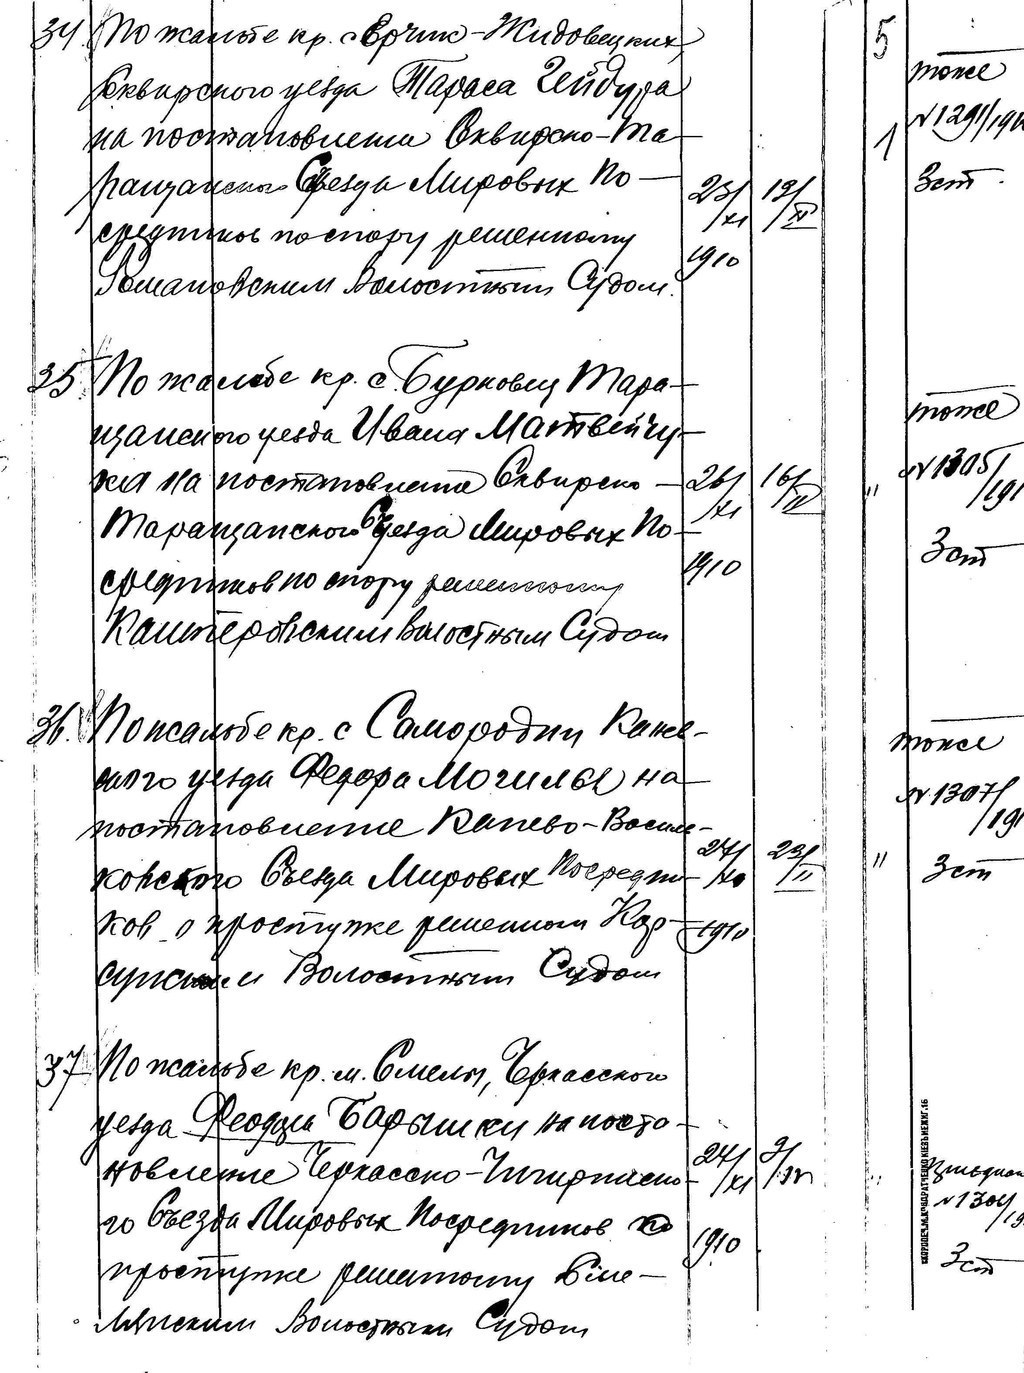 34 По жалобе кр. с Ерчик-Жидовецких
Сквирского уезда Тараса Гейдура
на постановление Сквирско-Та-
ращанского Съезда Мировых По-
средников по спору решенному
Романовским Волостным Судом.
23/XI 1910
13/II
5
1
тоже
№1291/191
3 ст.
35 По жалобе кр. с. Бурковец Тара-
щанского уезда Ивана Матвейчу-
ка на постановление Сквирско-
Таращанского Съезда Мировых По-
средников по спору решенному
Каштеровским Волостным Судом
26/XI 1910
16/II
"
тоже
№1305/191
3 ст
36. По жалобе кр. с Самородни Канев-
ского уезда Федора Могилы на
постановление Канево-Василь-
ковского Съезда Мировых Посредни-
ков о проступке решенном Кор-
сунским Волостным Судом
24/XI 1910
23/II
"
тоже
№1307/191
3 ст
37 По жалобе кр. м. Смелы, Черкасского
уезда Барышки на поста-
новление Черкасско-Чигиринско-
го Съезда Мировых Посредников по
проступке решенному Сме-
лянским Волостным Судом
24/XI 1910
"
№1304/19
3 ст